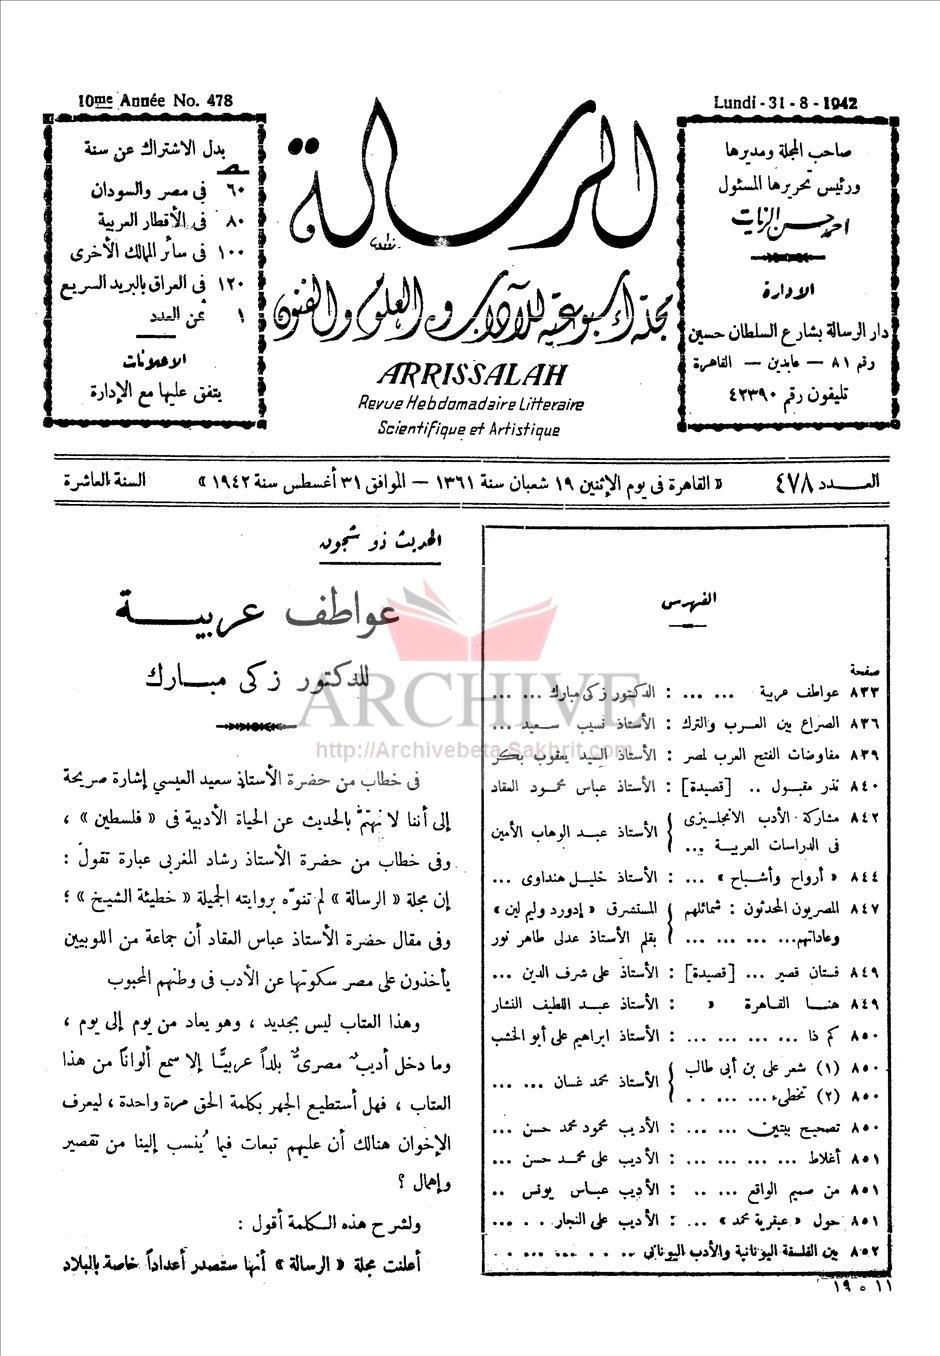 10me Année No. 478
Lundi - 31 - 8 - 1942
بدل الاشتراك عن سنة
٦٠ فى مصر والسودان
٨٠ فى الأقطار العربية
١٠٠ فى سائر الممالك الأخرى
١٢٠ فى العراق بالبريد السريع
١ ثمن العدد
الاعلانات
يتفق عليها مع الإدارة
الرسالة
مجلة أسبوعية للآداب والعلوم والفنون
ARRISSALAH
Revue Hebdomadaire Litteraire
Scientifique et Artistique
صاحب المجلة ومديرها
ورئيس تحريرها المسئول
احمد حسن الزيات
الادارة
دار الرسالة بشارع السلطان حسين
رقم ٨١ — عابدين — القاهرة
تليفون رقم ٤٢٣٩٠
العـدد ٤٧٨
« القاهرة فى يوم الإثنين ١٩ شعبان سنة ١٣٦١ — الموافق ٣١ أغسطس سنة ١٩٤٢ »
السنة العاشرة
الفهرس
صفحة
٨٣٣ عواطف عربية ... ... : الدكتور زكى مبارك ... ...
٨٣٦ الصراع بين العرب والترك : الأستاذ نسيب سعيد ...
٨٣٩ مفاوضات الفتح العرب لمصر : الأستاذ السيد يعقوب بكر
٨٤٠ نذر مقبول .. [قصيدة] : الأستاذ عباس محمود العقاد
٨٤٢ مشاركة الأدب الانجليزى
فى الدراسات العربية ... { الأستاذ عبد الوهاب الأمين
٨٤٤ « أرواح وأشباح » ... : الأستاذ خليل هنداوى ...
٨٤٧ المصريون المحدثون : شمائلهم { المستشرق « إدورد وليم لين »
وعاداتهم... ... ... ... بقلم الأستاذ عدلى طاهر نور
٨٤٩ فستان قصير ... [قصيدة] : الأستاذ على شرف الدين ...
٨٤٩ هنا القاهرة » : الأستاذ عبد اللطيف النشار
٨٥٠ كم ذا ... ... ... ... : الأستاذ ابراهيم على أبو الخشب
٨٥٠ (١) شعر على بن أبى طالب
٨٥٠ (٢) تخطىء ... ... . . { الأستاذ محمد غسان ... ...
٨٥٠ تصحيح بيتين ... ... : الأديب محمود محمد حسن ...
٨٥١ أغلاط ... ... ... ... : الأديب على محمد حسن ...
٨٥١ من صميم الواقع ... .. : الأديب عباس يونس ..
٨٥١ حول « عبقرية محمد » ... : الأديب على النجار . . ...
٨٥٢ بين الفلسفة اليونانية والأدب اليونانى .. . . ... ... . .
الحديث ذو شجون
عواطف عربية
للدكتور زكى مبارك
فى خطاب من حضرة الأستاذ سعيد العيسي إشارة صريحة
إلى أننا لا نهتمّ بالحديث عن الحياة الأدبية فى « فلسطين » ،
وفى خطاب من حضرة الأستاذ رشاد المغربى عبارة تقول :
إن مجلة « الرسالة » لم تنوّه بروايته الجميلة « خطيئة الشيخ » ؛
وفى مقال حضرة الأستاذ عباس العقاد أن جماعة من اللوبيين
يأخذون على مصر سكوتها عن الأدب فى وطنهم المحبوب
وهذا العتاب ليس بجديد ، وهو يعاد من يوم إلى يوم ،
وما دخل أديبٌ مصرىٌّ بلداً عربيًّا إلا سمع ألواناً من هذا
العتاب ، فهل أستطيع الجهر بكلمة الحق مرة واحدة ، ليعرف
الإخوان هنالك أن عليهم تبعات فيما يُنسب إلينا من تقصير
وإهمال ؟
ولشرح هذه الكلمة أقول :
أعلنت مجلة « الرسالة » أنها ستصدر أعداداً خاصة بالبلاد
ARCHIVE
http://Archivebeta.Sakhrit.com